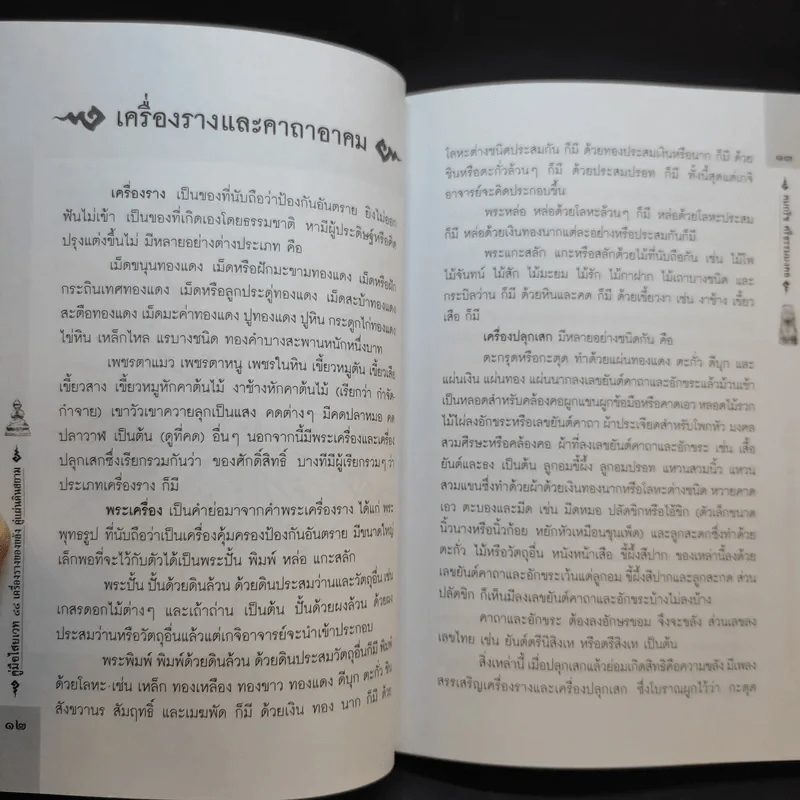 เครื่องรางและคาถาอาคม
เครื่องราง เป็นของที่นับถือว่าป้องกันอันตราย ยิงไม่ออก
ฟันไม่เข้า เป็นของที่เกิดเองโดยธรรมชาติ หามีผู้ประดิษฐ์หรือคิด
ปรุงแต่งขึ้นไม่ มีหลายอย่างต่างประเภท คือ
เม็ดขนุนทองแดง เม็ดหรือฝักมะขามทองแดง เม็ดหรือฝัก
กระถินเทศทองแดง เม็ดหรือลูกประดู่ทองแดง เม็ดสะบ้าทองแดง
สะตือทองแดง เม็ดมะค่าทองแดง ปูทองแดง ปูหิน กระดูกไก่ทองแดง
ไข่หิน เหล็กไหล แรบางชนิด ทองคำบางสะพานหนักหนึ่งบาท
เพชรตาแมว เพชรตาหนู เพชรในหิน เขี้ยวหมูตัน เขี้ยวเสือ
เขี้ยวสาง เขี้ยวหมูหักคาต้นไม้ งาช้างหักคาต้นไม้ (เรียกว่า กำจัด-
กำจาย) เขาวัวเขาควายลุกเป็นแสง คดต่างๆ มีคดปลาหมอ คด
ปลาวาฬ เป็นต้น (ดูที่คด) อื่นๆ นอกจากนี้มีพระเครื่องและเครื่อง
ปลุกเสกซึ่งเรียกรวมกันว่า ของศักดิ์สิทธิ์ บางทีมีผู้เรียกรวมๆ ว่า
ประเภทเครื่องราง ก็มี
พระเครื่อง เป็นคำย่อมาจากคำพระเครื่องราง ได้แก่ พระ
พุทธรูป ที่นับถือว่าเป็นเครื่องคุ้มครองป้องกันอันตราย มีขนาดใหญ่
เล็กพอที่จะไว้กับตัวได้เป็นพระปั้น พิมพ์ หล่อ แกะสลัก
พระปั้น ปั้นด้วยดินล้วน ด้วยดินประสมว่านและวัตถุอื่น เช่น
เกสรดอกไม้ต่างๆ และเถ้าถ่าน เป็นต้น ปั้นด้วยผงล้วน ด้วยผง
ประสมว่านหรือวัตถุอื่นแล้วแต่เกจิอาจารย์จะนำเข้าประกอบ
พระพิมพ์ พิมพ์ด้วยดินล้วน ด้วยดินประสมวัตถุอื่นก็มี พิมพ์
ด้วยโลหะ เช่น เหล็ก ทองเหลือง ทองขาว ทองแดง ดีบุก ตะกั่ว ชิน
สังขวานร สัมฤทธิ์ และเมฆพัด ก็มี ด้วยเงิน ทอง นาก ก็มี ด้วย
คู่มือไสยเวท ๑๔ เครื่องรางของขลัง คู่แผ่นดินสยาม
๑๒
โลหะต่างชนิดประสมกัน ก็มี ด้วยทองประสมเงินหรือนาก ก็มี ด้วย
ชินหรือตะกั่วล้วนๆ ก็มี ด้วยประสมปรอท ก็มี ทั้งนี้สุดแต่เกจิ
อาจารย์จะคิดประกอบขึ้น
พระหล่อ หล่อด้วยโลหะล้วนๆ ก็มี หล่อด้วยโลหะประสม
ก็มี หล่อด้วยเงินทองนากแต่ละอย่างหรือประสมกันก็มี
พระแกะสลัก แกะหรือสลักด้วยไม้ที่นับถือกัน เช่น ไม้โพ
ไม้จันทน์ ไม้สัก ไม้มะยม ไม้รัก ไม้กาฝาก ไม้เถาบางชนิด และ
กระบิลว่าน ก็มี ด้วยหินและคด ก็มี ด้วยเขี้ยวงา เช่น งาช้าง เขี้ยว
เสือ ก็มี
เครื่องปลุกเสก มีหลายอย่างชนิดกัน คือ
ตะกรุดหรือกะตุด ทำด้วยแผ่นทองแดง ตะกั่ว ดีบุก และ
แผ่นเงิน แผ่นทอง แผ่นนากลงเลขยันต์คาถาและอักขระแล้วม้วนเข้า
เป็นหลอดสำหรับคล้องคอผูกแขนผูกข้อมือหรือคาดเอว หลอดไม้รวก
ไม้ไผ่ลงอักขระหรือเลขยันต์คาถา ผ้าประเจียดสำหรับโพกหัว มงคล
สวมศีรษะหรือคล้องคอ ผ้าที่ลงเลขยันต์คาถาและอักขระ เช่น เสื้อ
ยันต์และธง เป็นต้น ลูกอมขี้ผึ้ง ลูกอมปรอท แหวนสวมนิ้ว แหวน
สวมแขนซึ่งทำด้วยผ้าด้วยเงินทองนากหรือโลหะต่างชนิด หวายคาด
เอว ตะบองและมีด เช่น มีดหมอ ปลัดขิกหรือไอ้ขิก (ตัวเล็กขนาด
นิ้วนางหรือนิ้วก้อย หยักหัวเหมือนขุนเพ็ด) และลูกสะตกซึ่งทำด้วย
ตะกั่ว ไม้หรือวัตถุอื่น หนังหน้าเสือ ขี้ผึ้งสีปาก ของเหล่านี้ลงด้วย
เลขยันต์คาถาและอักขระเว้นแต่ลูกอม ขี้ผึ้งสีปากและลูกสะกด ส่วน
ปลัดขิก ก็เห็นมีลงเลขยันต์คาถาและอักขระบ้างไม่ลงบ้าง
คาถาและอักขระ ต้องลงอักษรขอม จึงจะขลัง ส่วนเลขลง
เลขไทย เช่น ยันต์ตรีนิสิงเห หรือตรีสิงเห เป็นต้น
สิ่งเหล่านี้ เมื่อปลุกเสกแล้วย่อมเกิดสิทธิคือความขลัง มีเพลง
สรรเสริญเครื่องรางและเครื่องปลุกเสก ซึ่งโบราณผูกไว้ว่า กะตุด
๑๓